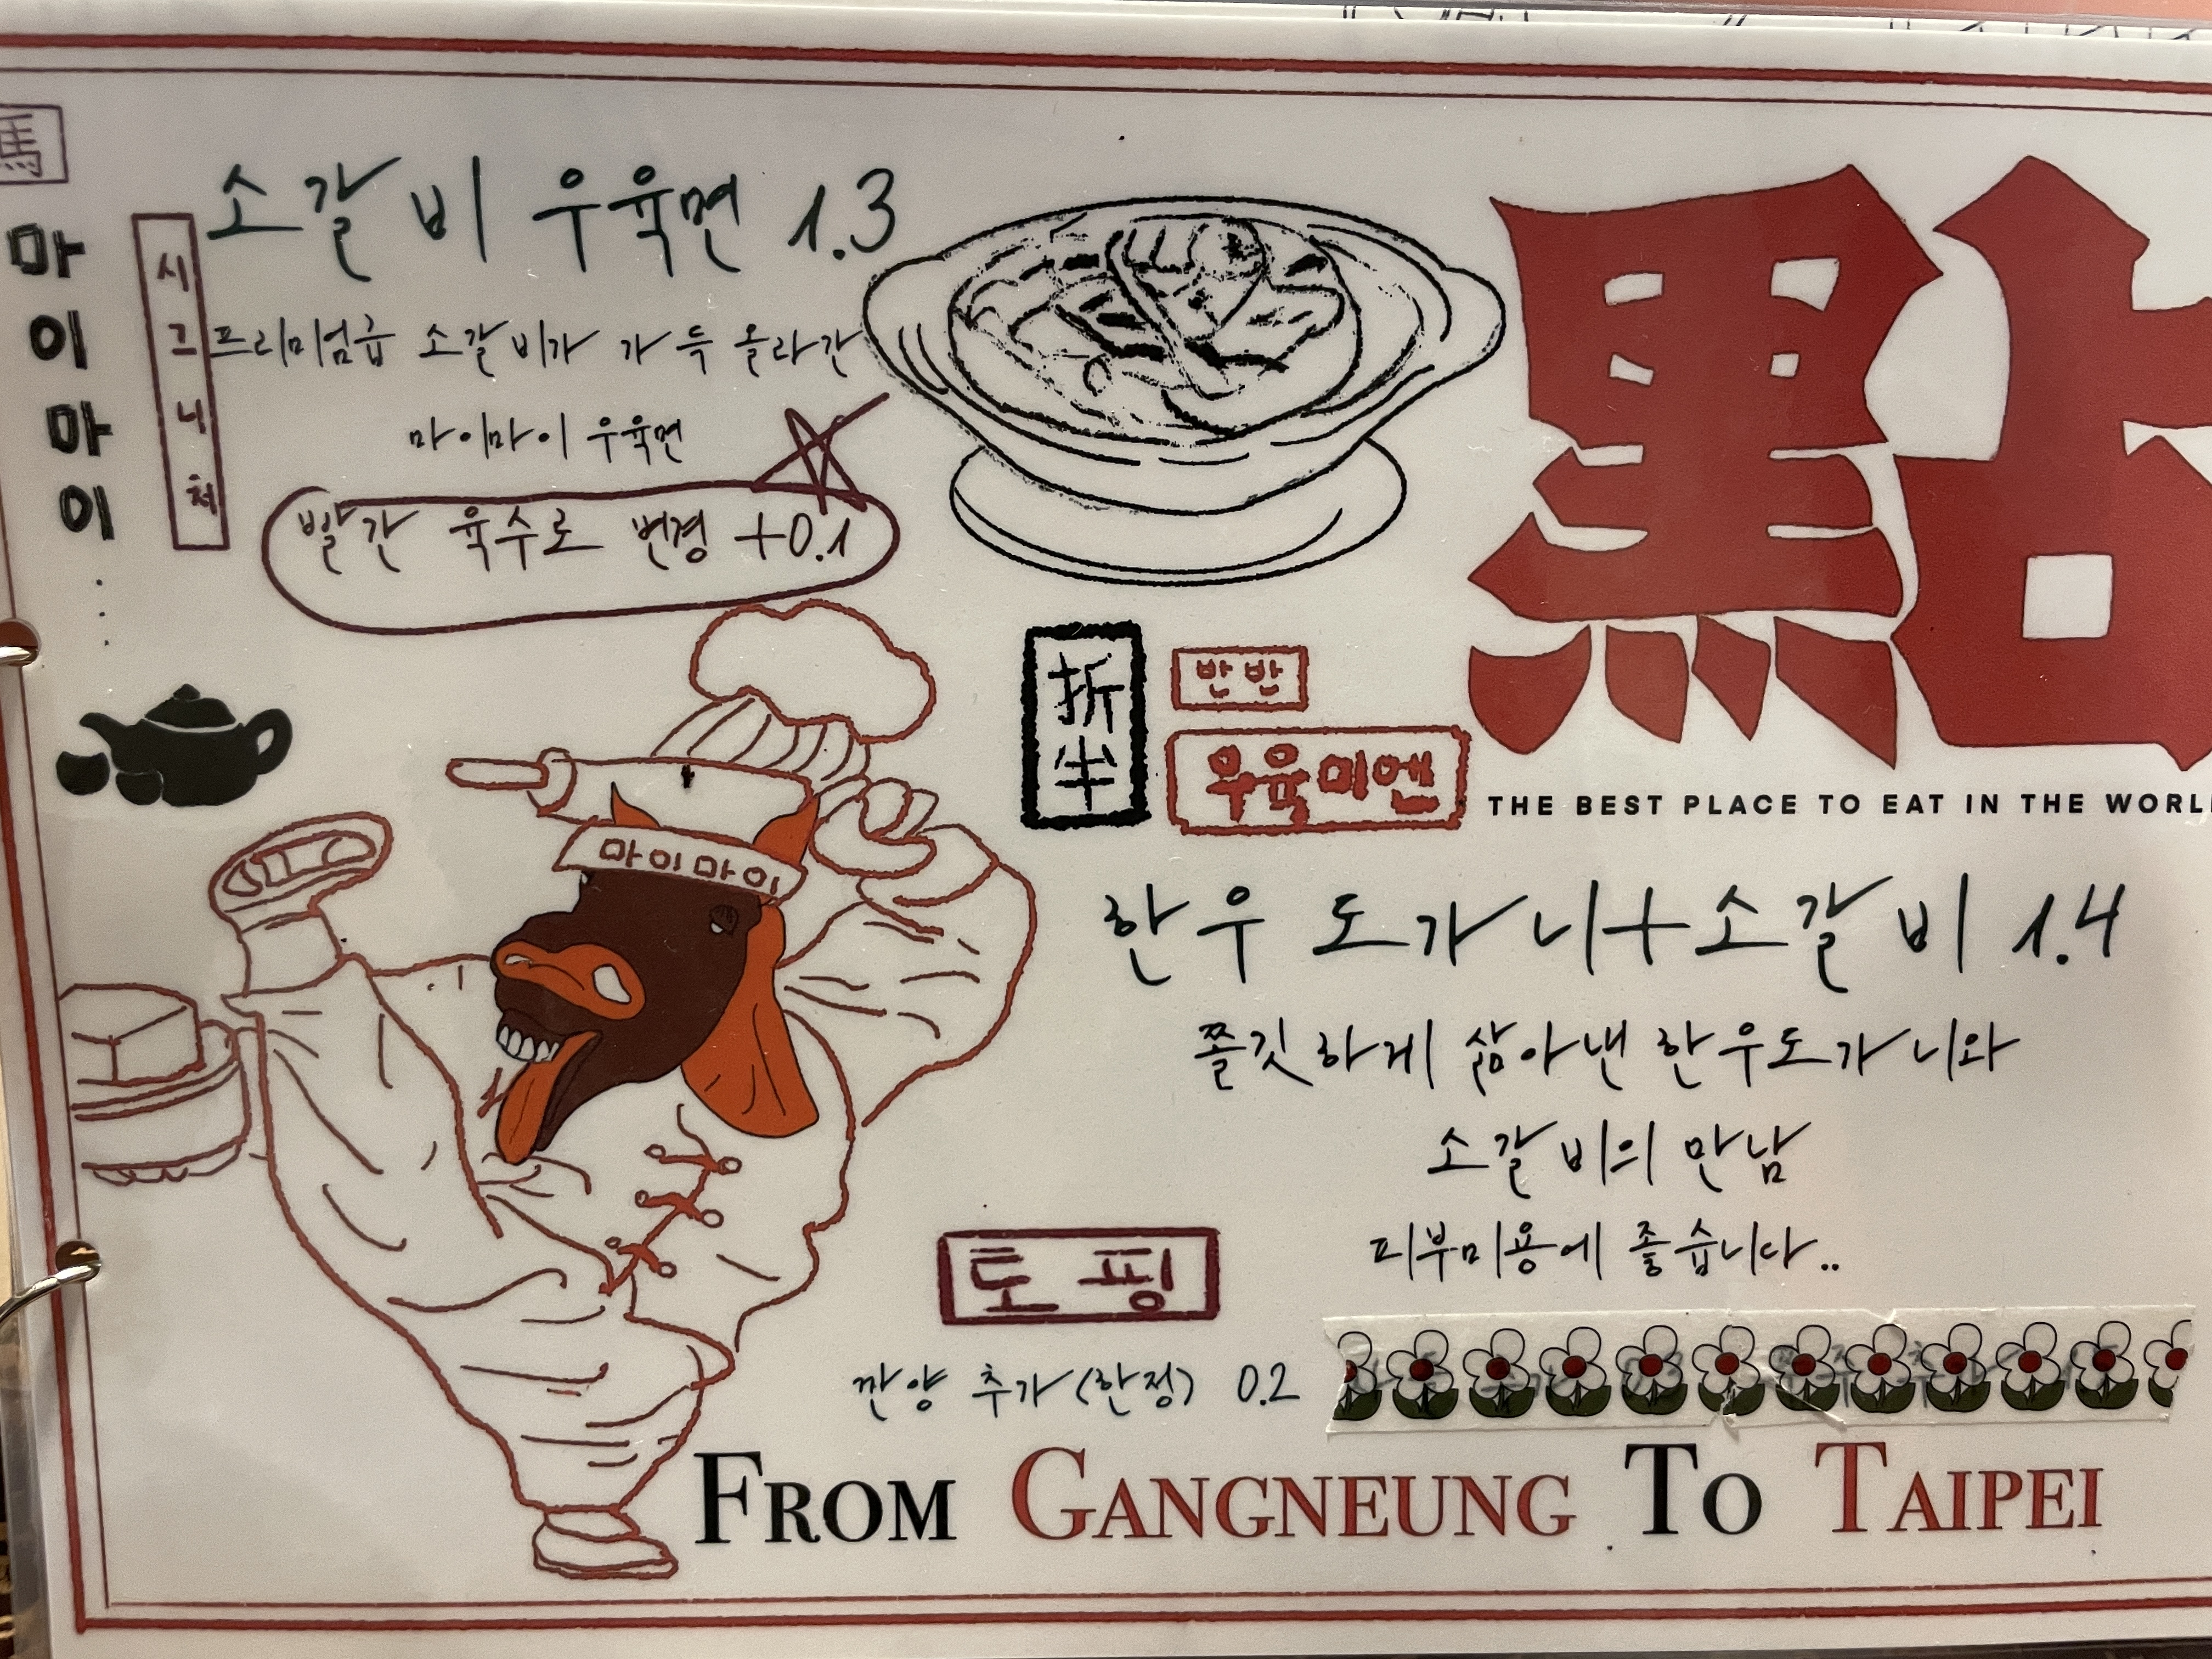 馬
마이마이
시그니처
소갈비 우육면 1.3
프리미엄급 소갈비가 가득 올라간
마이마이 우육면
빨간 육수로 변경 +0.1
點
THE BEST PLACE TO EAT IN THE WORL
折半
반반
우육미엔
마이마이
한우 도가니+소갈비 1.4
쫄깃하게 삶아낸 한우도가니와
소갈비의 만남
피부미용에 좋습니다..
토핑
깐양 추가(한정) 0.2
FROM GANGNEUNG TO TAIPEI